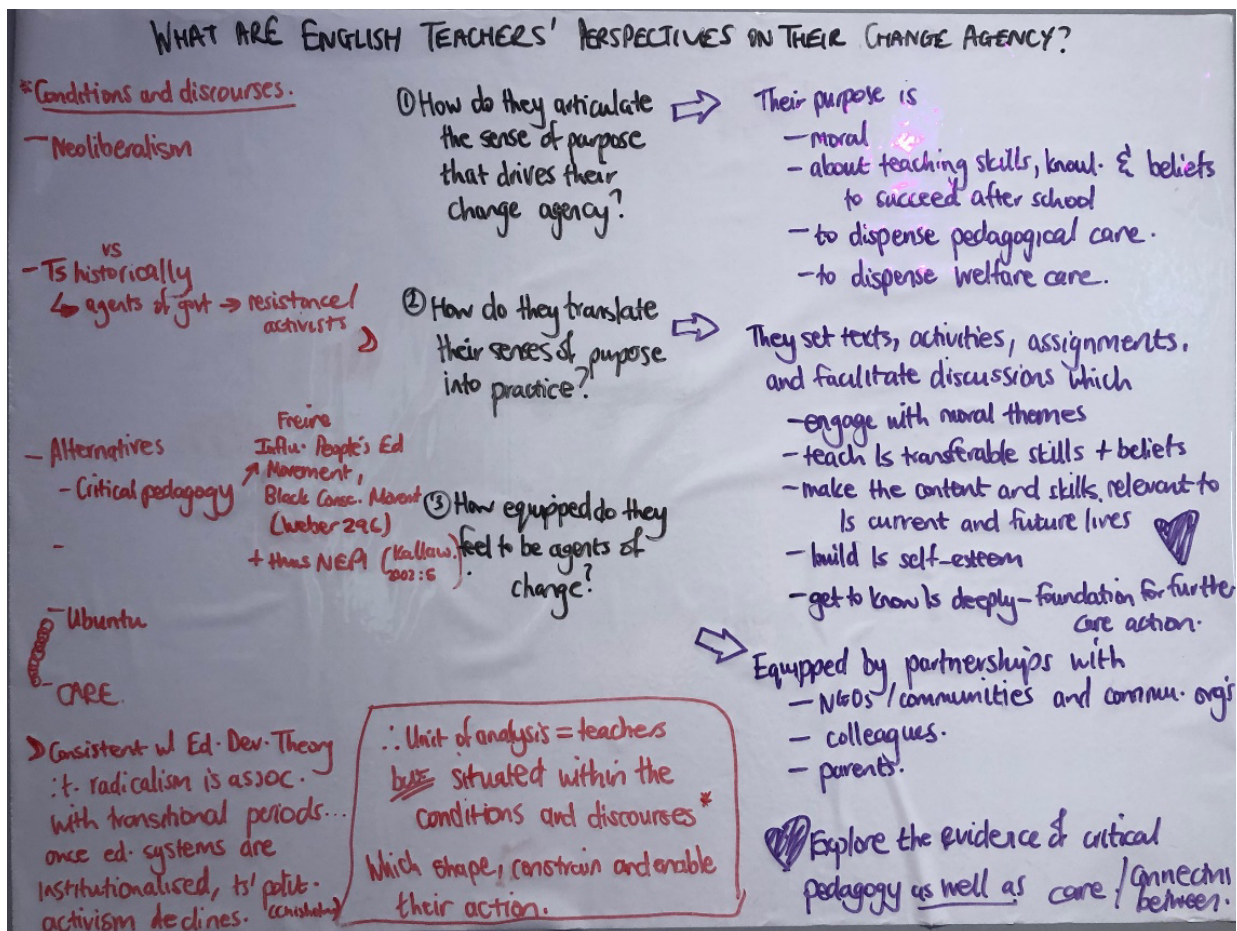 WHAT ARE ENGLISH TEACHERS' PERSPECTIVES ON THEIR CHANGE AGENCY?
*Conditions and discourses.
- Neoliberalism
vs
- Ts historically
↳ agents of govt → resistance/
activists
- Alternatives
- Critical pedagogy
↗
Freire
Influ. People's Ed
Movement,
Black Consc. Movent
(Weber 296)
+ thus NEPI (Kallaw.
2002:5).
-
- Ubuntu
- CARE.
Consistent w/ Ed. Dev. Theory
:t. radicalism is assoc.
with transitional periods...
once ed. systems are
institutionalised, ts' polit.
activism declines. (Chisholm)
① How do they articulate
the sense of purpose
that drives their
change agency?
② How do they translate
their senses of purpose
into practice?
③ How equipped do they
feel to be agents of
change?
∴ Unit of analysis = teachers
but situated within the
conditions and discourses*
Which shape, constrain and enable
their action.
⇨ Their purpose is
- moral
- about teaching skills, knowl. & beliefs
to succeed after school
- to dispense pedagogical care.
- to dispense welfare care.
⇨ They set texts, activities, assignments,
and facilitate discussions which
- engage with moral themes
- teach ls transferable skills + beliefs
- make the content and skills relevant to
ls current and future lives
- build ls self-esteem
- get to know ls deeply – foundation for further
care action.
⇨ Equipped by partnerships with
- NGOs/communities and commun. org's
- colleagues.
- parents.
Explore the evidence of critical
pedagogy as well as care / connections
between.